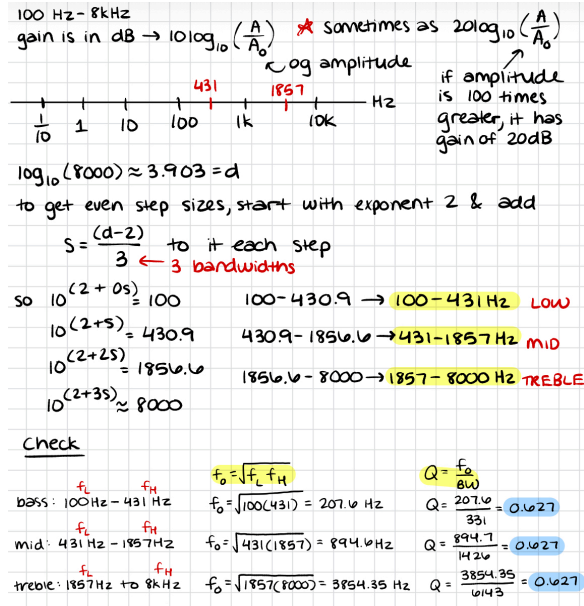 100 Hz - 8kHz
gain is in dB → 10log₁₀ (A/A₀) ★ sometimes as 20log₁₀ (A/A₀)
og amplitude
if amplitude
is 100 times
greater, it has
gain of 20dB
431 1857
Hz
1/10 1 10 100 1k 10k
log₁₀(8000) ≈ 3.903 = d
to get even step sizes, start with exponent 2 & add
S = (d-2)/3 to it each step
← 3 bandwidths
so 10^(2+0s) = 100 100-430.9 → 100-431Hz LOW
10^(2+s) = 430.9 430.9-1856.6 → 431-1857Hz MID
10^(2+2s) = 1856.6 1856.6-8000 → 1857-8000 Hz TREBLE
10^(2+3s) ≈ 8000
Check
f₀ = √(f_L f_H) Q = f₀/BW
f_L f_H
bass: 100Hz - 431 Hz f₀ = √(100(431)) = 207.6 Hz Q = 207.6/331 = 0.627
f_L f_H
mid: 431 Hz - 1857Hz f₀ = √(431(1857)) = 894.6Hz Q = 894.7/1426 = 0.627
f_L f_H
treble: 1857Hz to 8kHz f₀ = √(1857(8000)) = 3854.35 Hz Q = 3854.35/6143 = 0.627